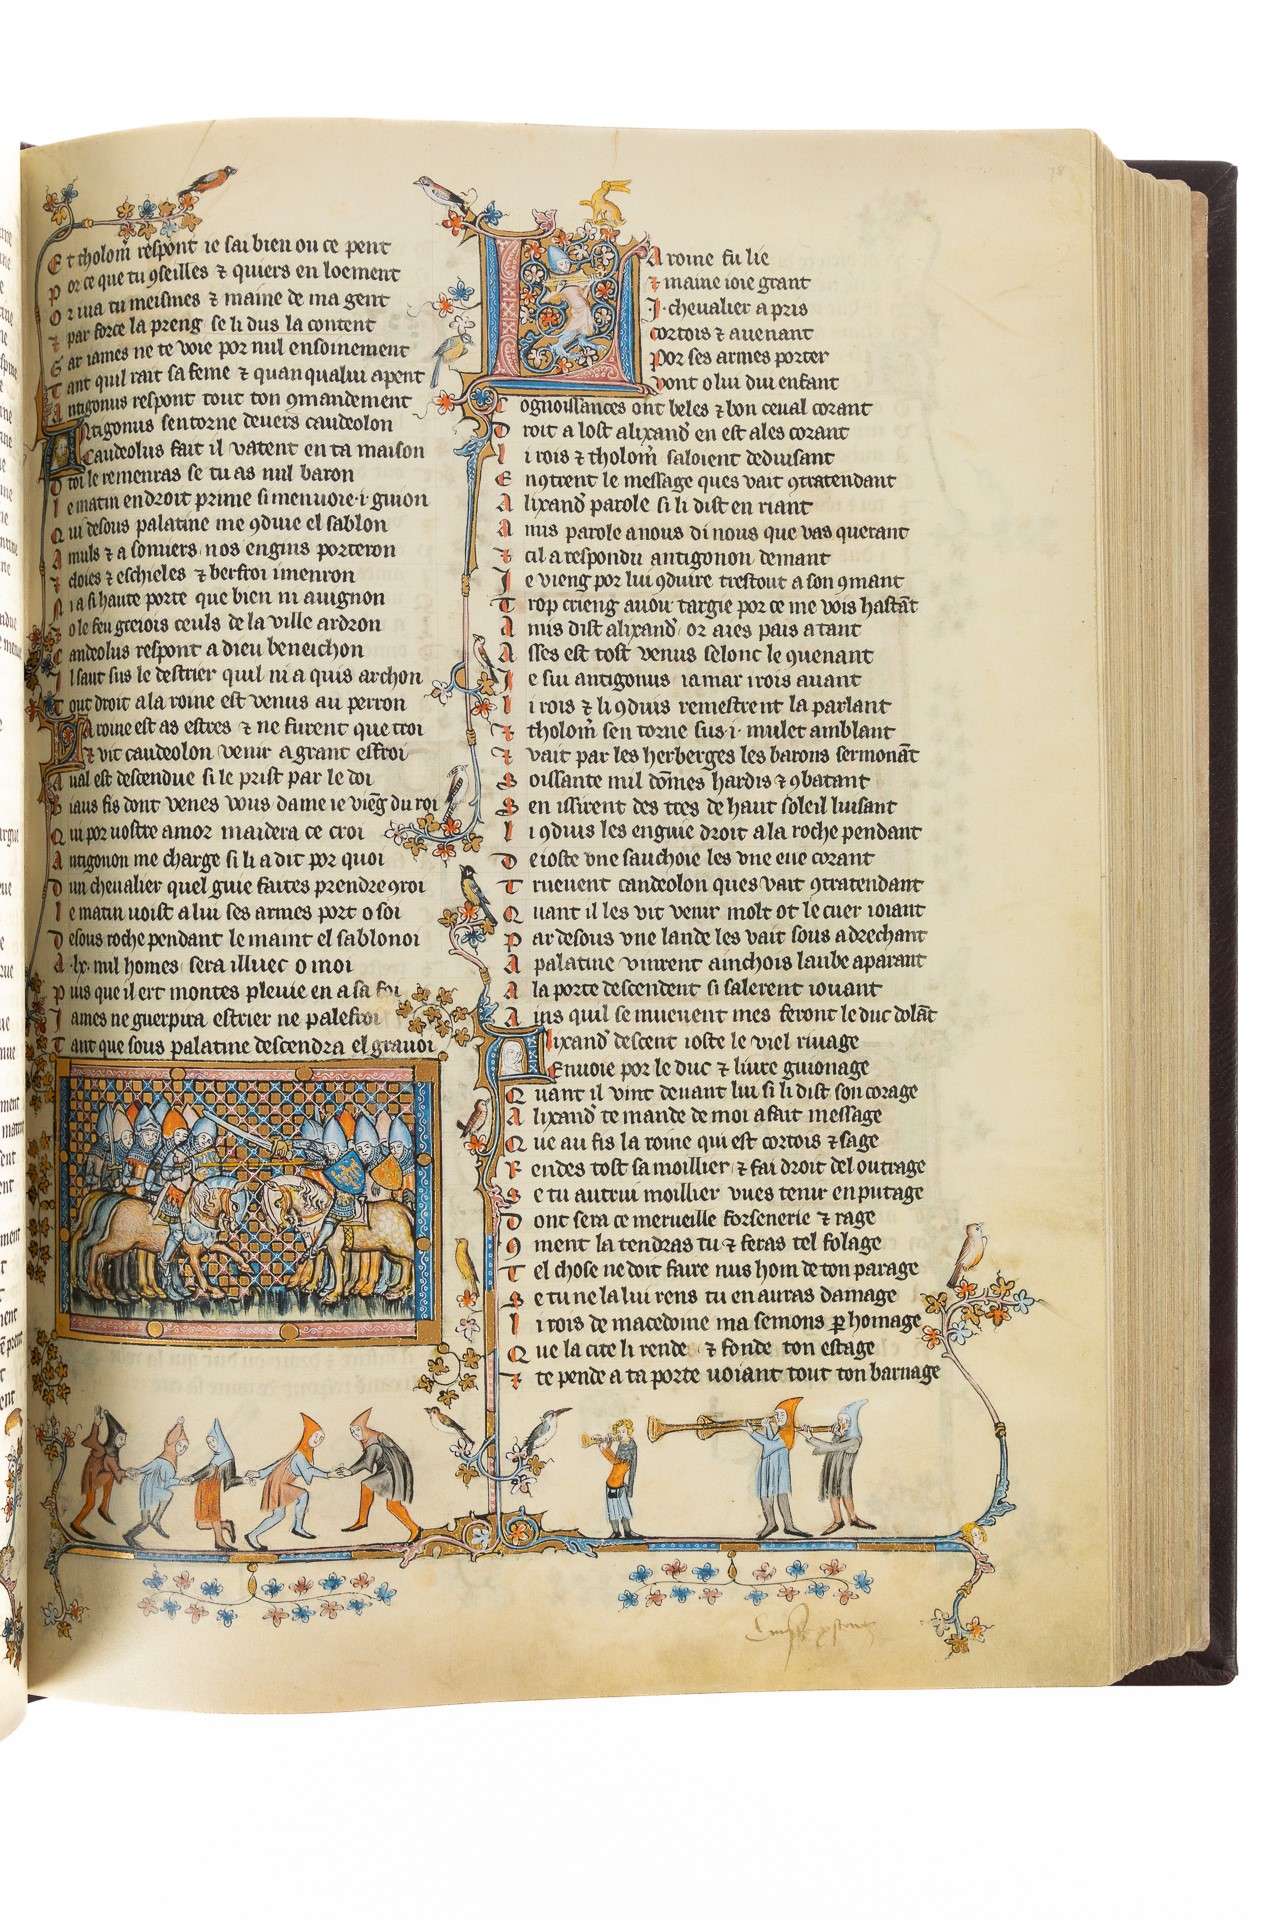 Et tholom̃ respont ie sai bien ou ce pent
Por ce que tu ꝯseilles ⁊ quiers en loement
Or iua tu meismes ⁊ maine de ma gent
⁊ par force la preng se li dus la content
Gar iames ne te voie por nul ensoinement
Tant quil rait sa feme ⁊ quanqua lui apent
Antigonus respont tout ton ꝯmandement
Antigonus sen torne deuers caudeolon
Caudeolus fait il vatent en ta maison
O toi le remenras se tu as nul baron
Le matin en droit prime si men uoie ·i· guion
Qui desous palatine me ꝯduie el sablon
A muls ⁊ a somiers nos engins porteron
⁊ cloies ⁊ eschieles ⁊ berfroi i menron
Ni a si haute porte que bien ni auignon
⁊ o le feu greiois ceuls de la ville ardron
Candeolus respont a dieu beneichon
Il saut sus le destrier quil ni a quis archon
Tout droit a la roine est venus au perron
La roine est as estres ⁊ ne furent que troi
⁊ vit caudeolon venir a grant effroi
Aual est descendue si le prist par le doi
Biaus fis dont venes vous dame ie vieg̃ du roi
Qui por uostre amor maidera ce croi
Antigonon me charge si li a dit por quoi
Dun cheualier quel guie faites prendre ꝯroi
Le matin uoist a lui ses armes port o soi
Desous roche pendant le maint el sablonoi
A ·lx· mil homes sera illuec o moi
Puis que il ert montes pleuie en a sa foi
James ne guerpira estrier ne palefroi
Tant que sous palatine descendra el grauoi
La roine fu lie
⁊ maine ioie grant
·J· cheualier a pris
cortois ⁊ auenant
por ses armes porter
vont o lui dui enfant
Cognoissances ont beles ⁊ bon ceual corant
Droit a lost alixand̃ en est ales corant
Li rois ⁊ tholom̃ saloient deduisant
Enꝯtrent le message ques vait ꝯtratendant
Alixand̃ parole si li dist en riant
Amis parole a nous di nous que vas querant
⁊ cil a respondu antigonon demant
Je vieng por lui ꝯduire trestout a son ꝯmant
Trop crieng auoir targie por ce me vois hastãt
Amis dist alixand̃ or aies pais a tant
Asses est tost venus selonc le ꝯuenant
Je sui antigonus iamar irois auant
Li rois ⁊ li ꝯduis remestrent la parlant
⁊ tholom̃ sen torne sus ·i· mulet amblant
⁊ vait par les herberges les barons sermonãt
Soissante mil dõmes hardis ⁊ ꝯbatant
Sen issirent des tres de haut soleil luisant
Li ꝯduis les enguie droit a la roche pendant
De ioste vne sauchoie les vne eue corant
Trueuent candeolon ques vait ꝯtratendant
Quant il les vit venir molt ot le cuer ioiant
Par desous vne lande les vait sous adrechant
A palatine vinrent ainchois laube aparant
A la porte descendent si salerent iouant
Ains quil se mueuent mes feront le duc dolãt
Alixand̃ descent ioste le viel riuage
Enuoie por le duc ⁊ liure guionage
Quant il vint deuant lui si li dist son corage
Alixand̃ te mande de moi a fait message
Que au fis la roine qui est cortois ⁊ sage
Rendes tost sa moillier ⁊ fai droit del outrage
Se tu autrui moillier vues tenir en putage
Dont sera ce merueille forsenerie ⁊ rage
ꝯment la tendras tu ⁊ feras tel folage
Tel chose ne doit faire nus hom de ton parage
Se tu ne la lui rens tu en auras damage
Li rois de macedoine ma semons ꝑ homage
Que la cite li rende ⁊ fonde ton estage
⁊ te pende a ta porte uoiant tout ton barnage